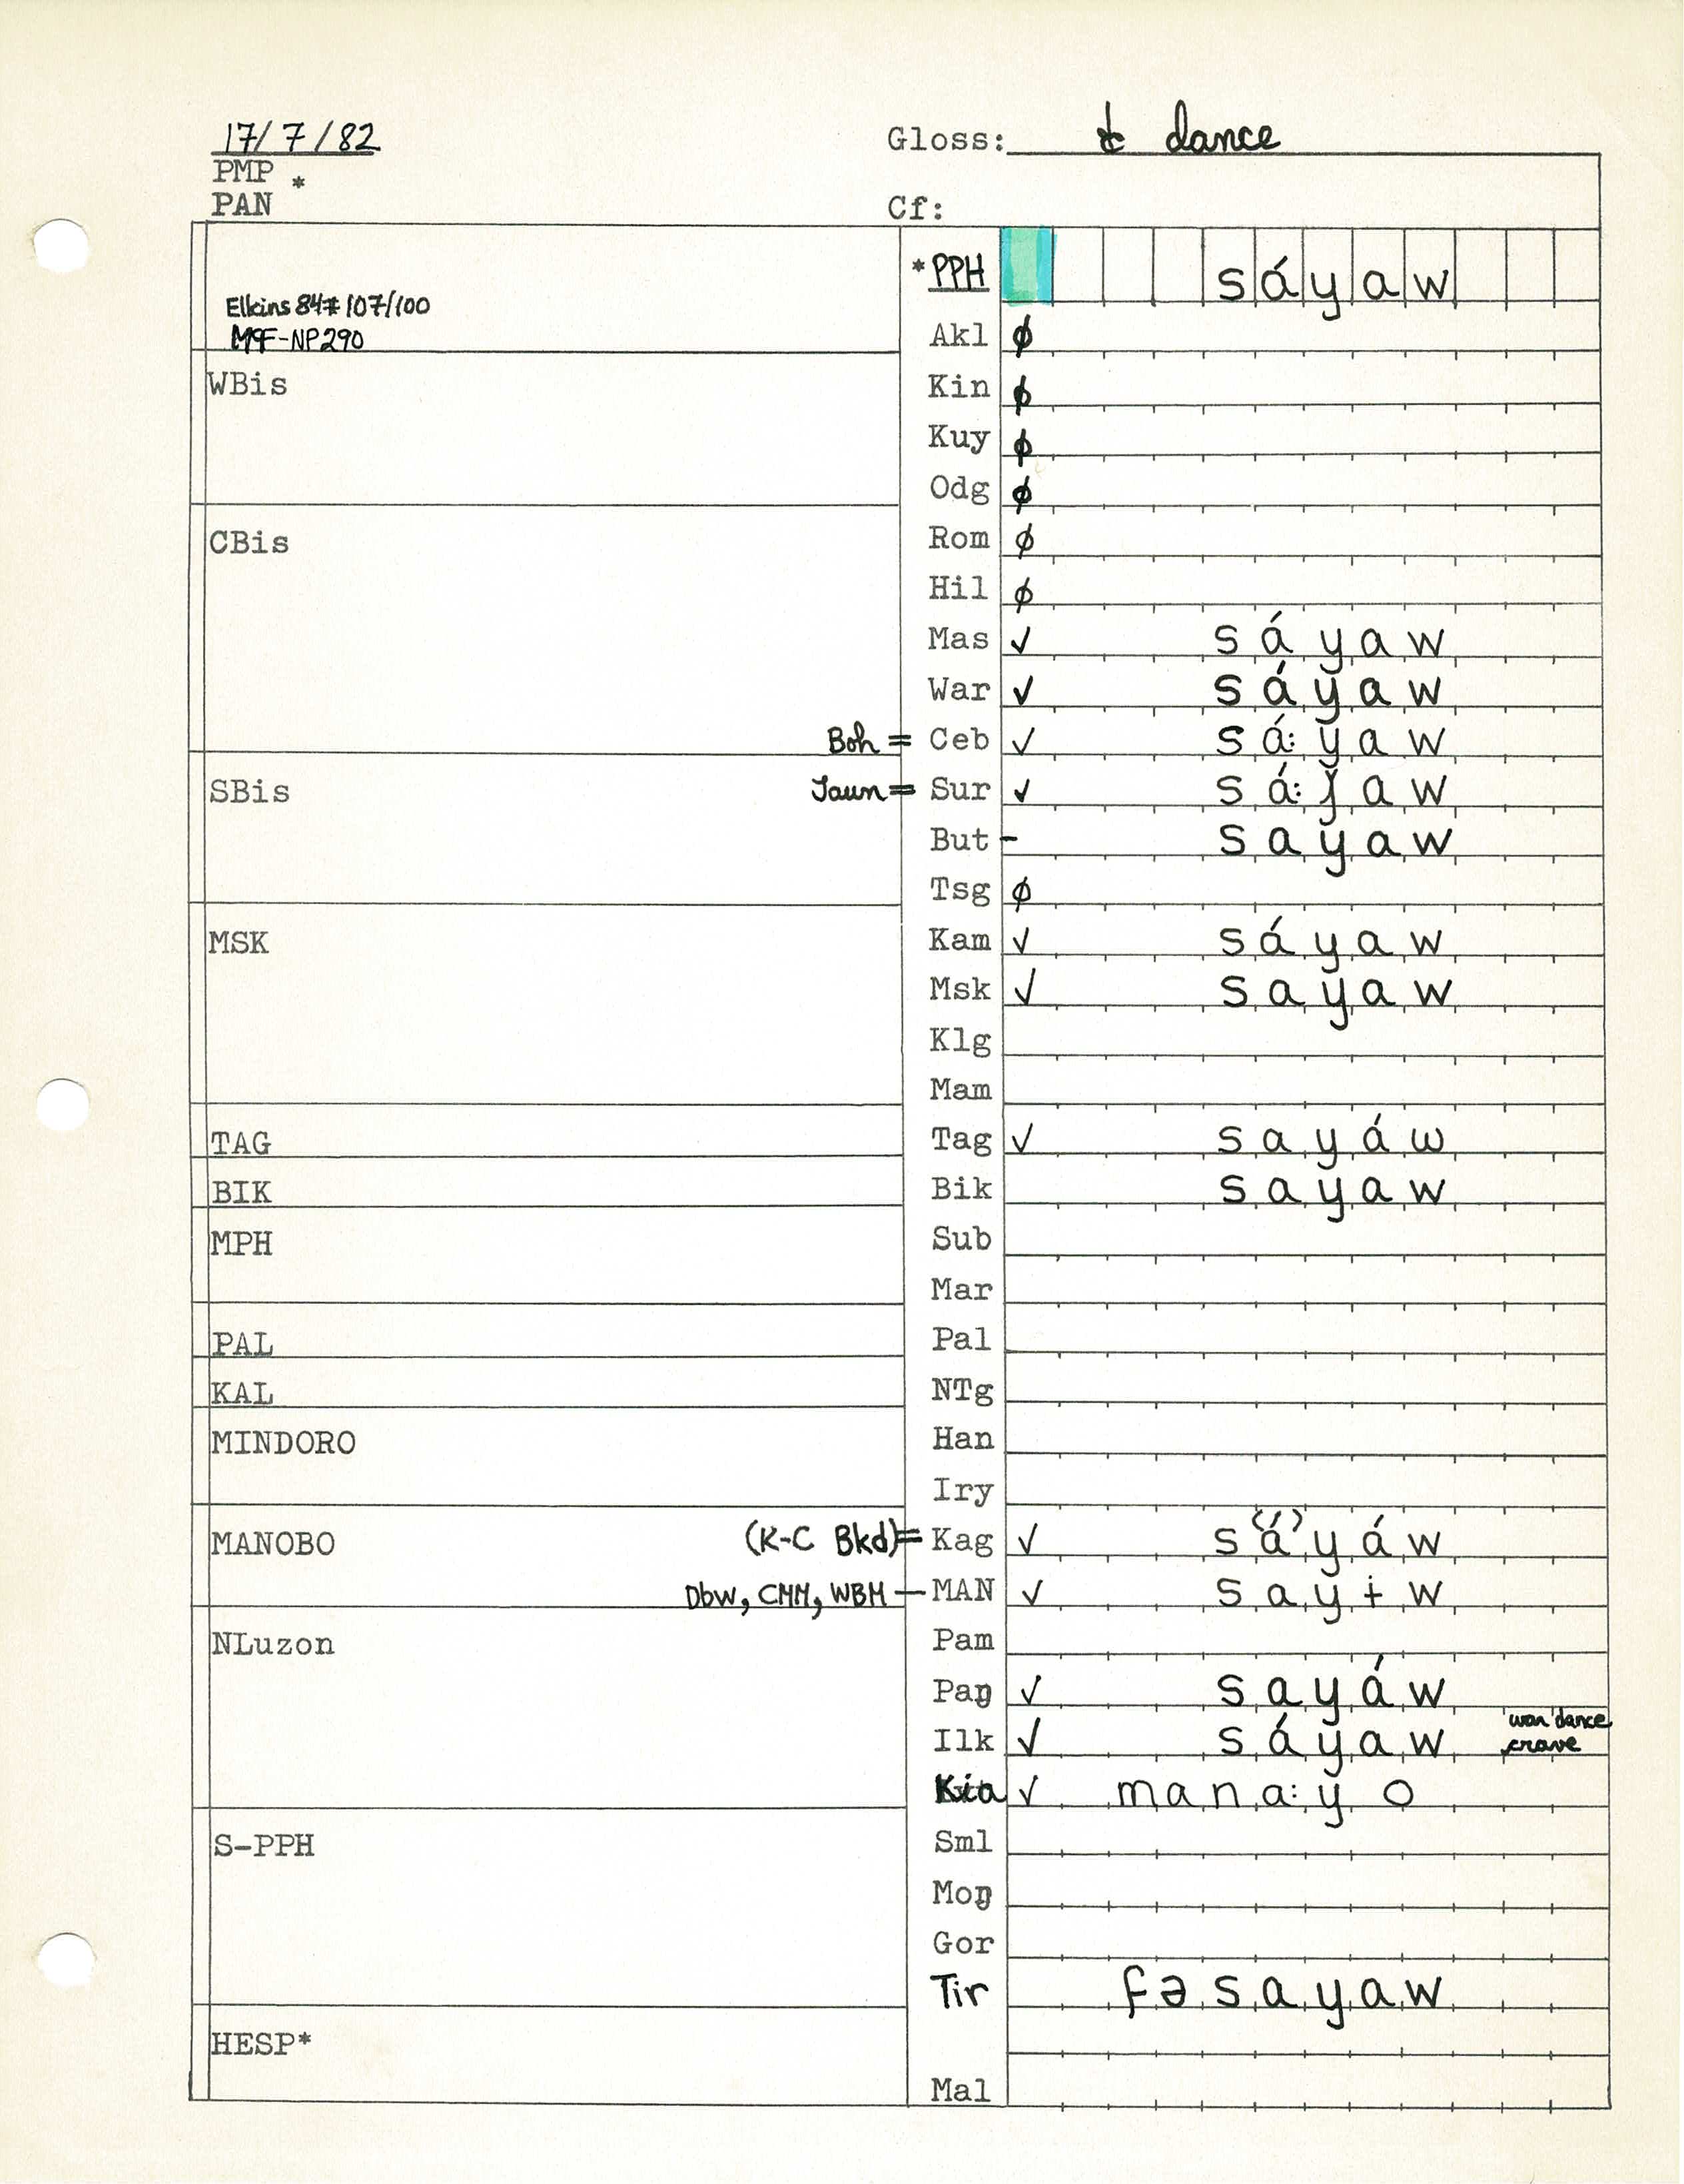 17/7/82
Gloss: to dance
PMP
*
PAN
Cf:
*PPH sáyaw
Elkins 84# 107/100
McF-NP290
Akl ø
WBis
Kin ø
Kuy ø
Odg ø
CBis
Rom ø
Hil ø
Mas ✓ sáyaw
War ✓ sáyaw
Boh = Ceb ✓ sá:yaw
SBis
Jaun = Sur ✓ sá:ǰaw
But - sayaw
Tsg ø
MSK
Kam ✓ sáyaw
Msk ✓ sayaw
Klg
Mam
TAG
Tag ✓ sayáw
BIK
Bik sayaw
MPH
Sub
Mar
PAL
Pal
KAL
NTg
MINDORO
Han
Iry
MANOBO
(K-C Bkd) = Kag ✓ s(á)yáw
Dbw, CMM, WBM — MAN ✓ sayɨw
NLuzon
Pam
Paŋ ✓ sayáw
Ilk ✓ sáyaw war dance
crave
Kia ✓ mana:yo
S-PPH
Sml
Moŋ
Gor
Tir fəsayaw
HESP*
Mal